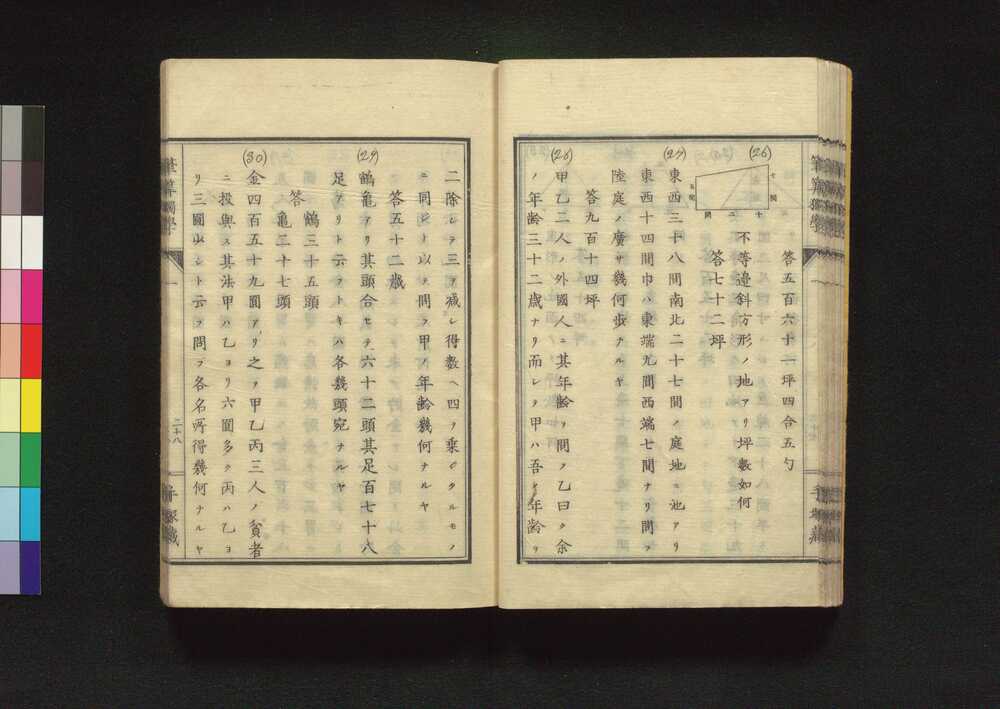 答五百六十一坪四合五勺
(26)
七間
五間
十二間
不等邉斜方形ノ地アリ坪數如何
答七十二坪
(27)
東西三十八間南北二十七間ノ庭地ニ池アリ
東西十四間巾ハ東端九間西端七間ナリ問フ
陸庭ノ廣サ幾何歩ナルヤ
答九百十四坪
(28)
甲乙二人ノ外國人ニ其年齢ヲ問ノ乙曰ク余
ノ年齢三十二歳ナリ而シテ甲ハ吾年齢ヲ
二除シテ三ヲ減シ得數ヘ四ヲ乗シタルモノ
ニ同シト以テ問フ甲ノ年齢幾何ナルヤ
答五十二歳
(29)
鶴亀アリ其頭合セテ六十二頭其足百七十八
足アリト云フトキハ各幾頭宛ナルヤ
答 鶴三十五頭
亀二十七頭
(30)
金四百五十九圓アリ之ヲ甲乙丙三人ノ貧者
ニ投與ス其法甲ハ乙ヨリ六圓多ク丙ハ乙ヨ
リ三圓少シト云フ問フ各名所得幾何ナルヤ
筆算獨學
二十八